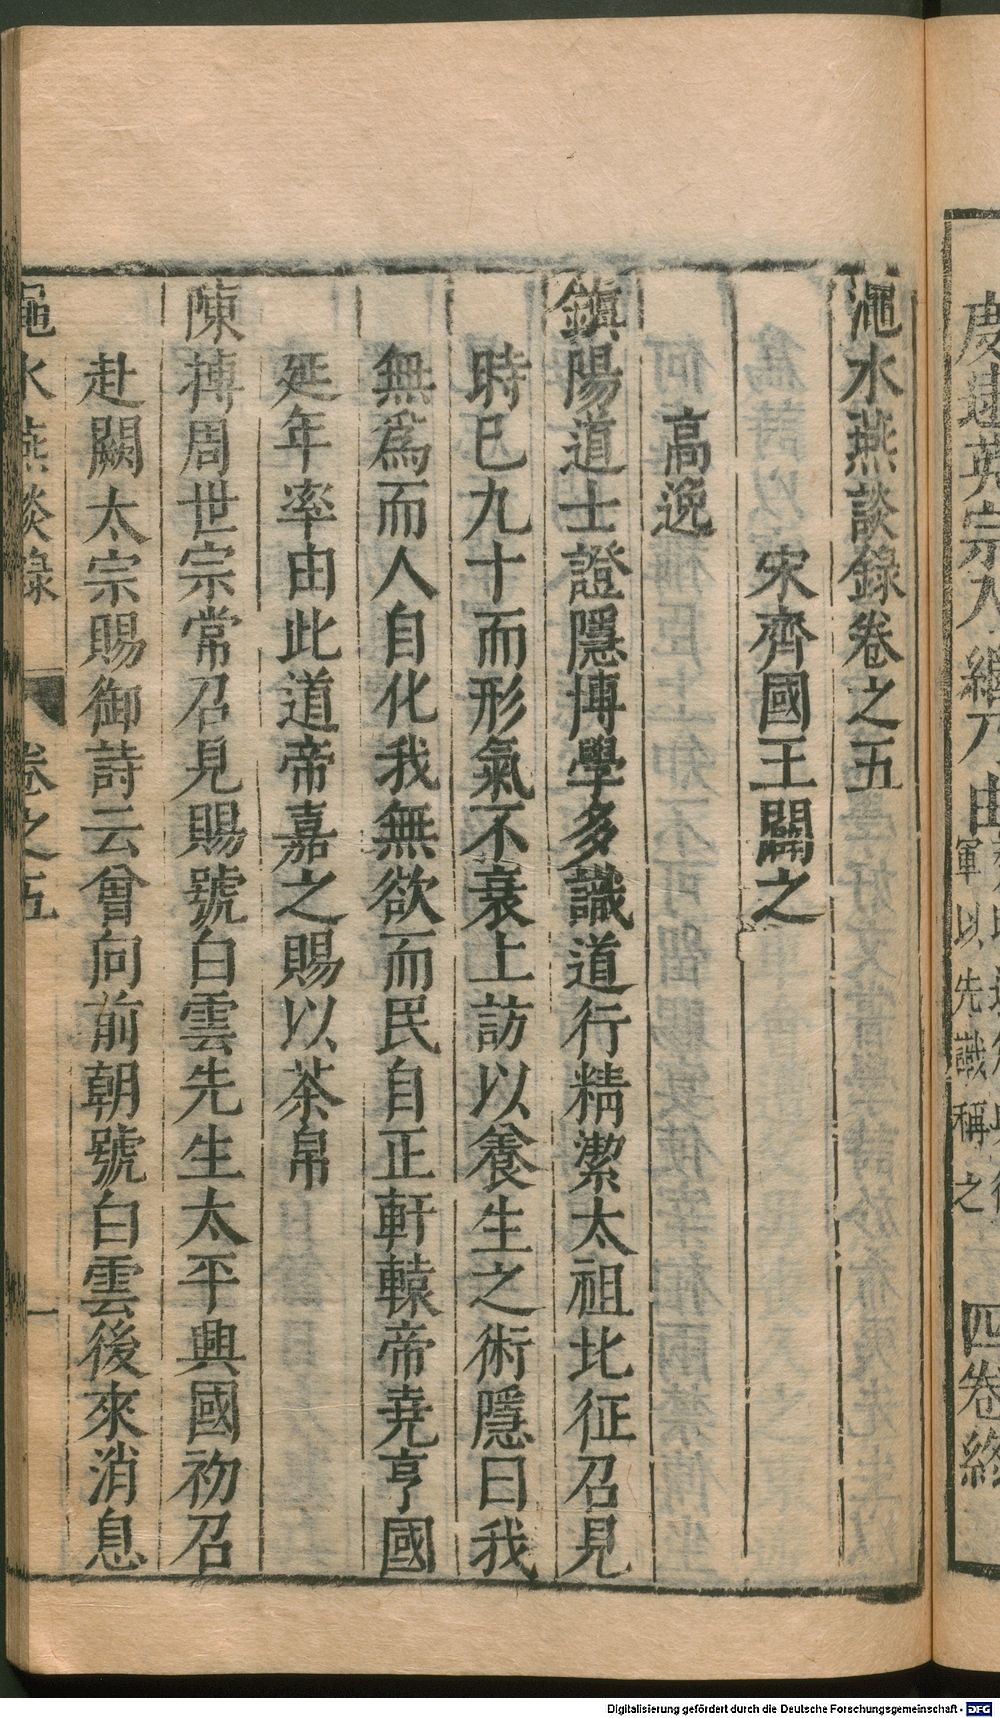 澠水燕談錄卷之五
宋齊國王闢之
高逸
鎮陽道士證隱博學多識道行精潔太祖北征召見
時已九十而形氣不衰上訪以養生之術隱曰我
無爲而人自化我無欲而民自正軒轅帝堯亨國
延年率由此道帝嘉之賜以茶帛
陳摶周世宗常召見賜號白雲先生太平興國初召
赴闕太宗賜御詩云曾向前朝號白雲後來消息
澠水燕談錄 卷之五 一
四卷終
軍以先識稱之
Digitalisierung gefördert durch die Deutsche Forschungsgemeinschaft - DFG